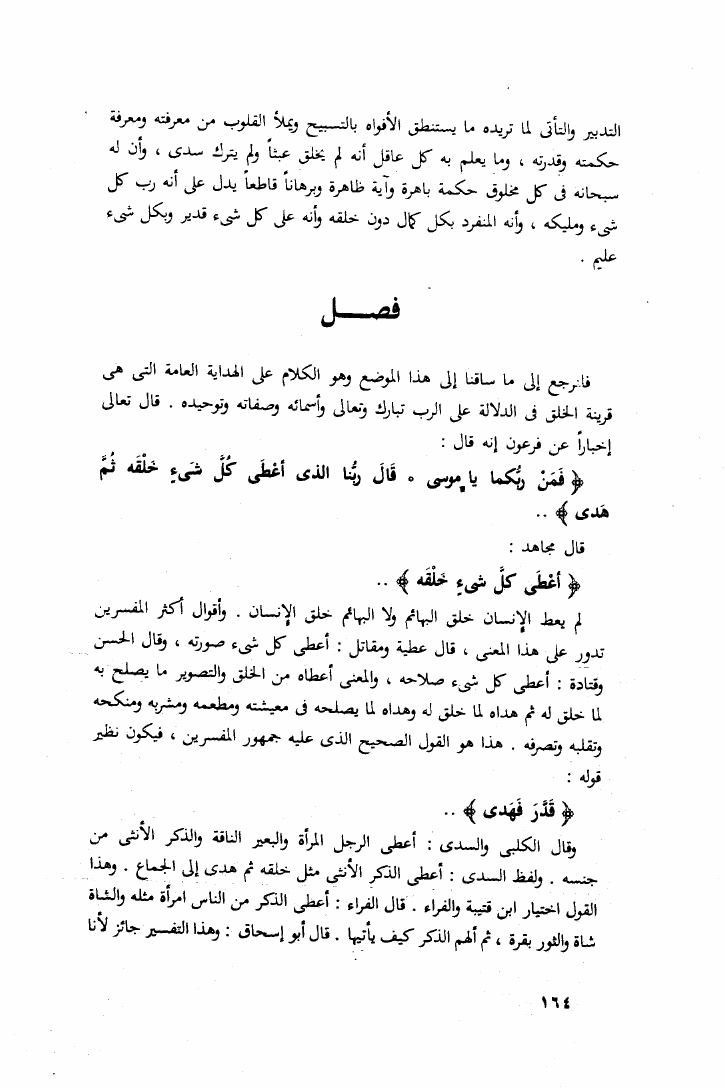 التدبير والتأنى لما تريده ما يستنطق الأفواه بالتسبيح ويملأ القلوب من معرفته ومعرفة
حكمته وقدرته ، وما يعلم به كل عاقل أنه لم يخلق عبثاً ولم يترك سدى ، وأن له
سبحانه فى كل مخلوق حكمة باهرة وآية ظاهرة وبرهاناً قاطعاً يدل على أنه رب كل
شىء ومليكه ، وأنه المنفرد بكل كمال دون خلقه وأنه على كل شىء قدير وبكل شىء
عليم .
فصــــل
فانرجع إلى ما ساقنا إلى هذا الموضع وهو الكلام على الهداية العامة التى هى
قرينة الخلق فى الدلالة على الرب تبارك وتعالى وأسمائه وصفاته وتوحيده . قال تعالى
إخباراً عن فرعون إنه قال :
﴿ فَمَنْ رَبُّكما يا موسى ٥ قَالَ ربُّنا الذى أعْطَى كُلَّ شَىءٍ خَلْقَه ثُمَّ
هَدى ﴾ ..
قال مجاهد :
﴿ أعْطَى كلَّ شىءٍ خَلْقَه ﴾ ..
لم يعط الإنسان خلق البهائم ولا البهائم خلق الإنسان . وأقوال أكثر المفسرين
تدور على هذا المعنى ، قال عطية ومقاتل : أعطى كل شىء صورته ، وقال الحسن
وقتادة : أعطى كل شىء صلاحه ، والمعنى أعطاه من الخلق والتصوير ما يصلح به
لما خلق له ثم هداه لما خلق له وهداه لما يصلحه فى معيشته ومطعمه ومشربه ومنكحه
وتقلبه وتصرفه . هذا هو القول الصحيح الذى عليه جمهور المفسرين ، فيكون نظير
قوله :
﴿ قَدَّرَ فَهَدى ﴾ ..
وقال الكلبى والسدى : أعطى الرجل المرأة والبعير الناقة والذكر الأنثى من
جنسه . ولفظ السدى : أعطى الذكر الأنثى مثل خلقه ثم هدى إلى الجماع . وهذا
القول اختيار ابن قتيبة والفراء . قال الفراء : أعطى الذكر من الناس امرأة مثله والشاة
شاة والثور بقرة ، ثم ألهم الذكر كيف يأتيها . قال أبو إسحاق : وهذا التفسير جائز لأنا
١٦٤